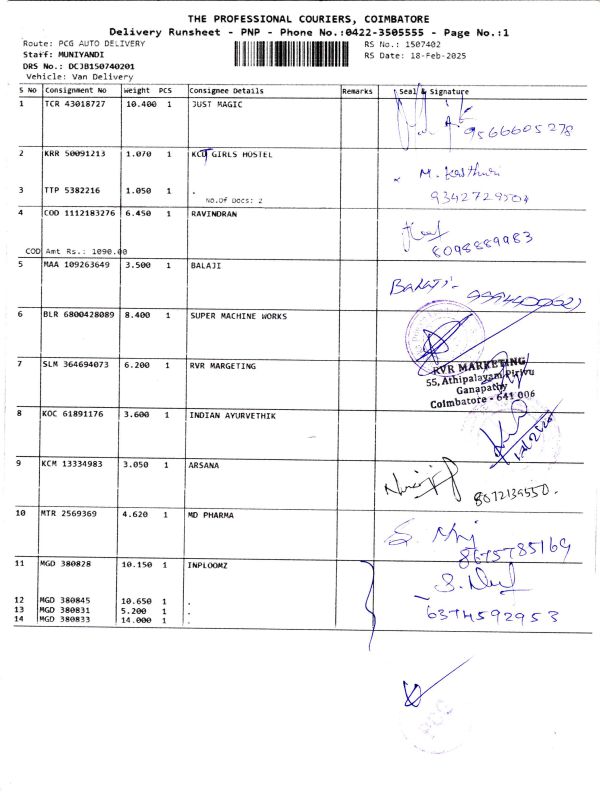 THE PROFESSIONAL COURIERS, COIMBATORE
Delivery Runsheet - PNP - Phone No.:0422-3505555 - Page No.:1
Route: PCG AUTO DELIVERY RS No.: 1507402
Staff: MUNIYANDI RS Date: 18-Feb-2025
DRS No.: DCJB150740201
Vehicle: Van Delivery
S No Consignment No Weight PCS Consignee Details Remarks Seal & Signature
1 TCR 43018727 10.400 1 JUST MAGIC
9566605278
2 KRR 50091213 1.070 1 KCT GIRLS HOSTEL
M. Kasthuri
3 TTP 5382216 1.050 1 .
No.Of Docs: 2
4 COD 1112183276 6.450 1 RAVINDRAN
8098889983
COD Amt Rs.: 1090.00
5 MAA 109263649 3.500 1 BALAJI
BALAJI
6 BLR 6800428089 8.400 1 SUPER MACHINE WORKS
7 SLM 364694073 6.200 1 RVR MARGETING
RVR MARKETING
55, Athipalayam Pirivu
Ganapathy
Coimbatore - 641 006
8 KOC 61891176 3.600 1 INDIAN AYURVETHIK
9 KCM 13334983 3.050 1 ARSANA
8072139550.
10 MTR 2569369 4.620 1 MD PHARMA
8675785169
11 MGD 380828 10.150 1 INPLOOMZ
12 MGD 380845 10.650 1 .
13 MGD 380831 5.200 1 .
14 MGD 380833 14.000 1 .
6374592953
PCC